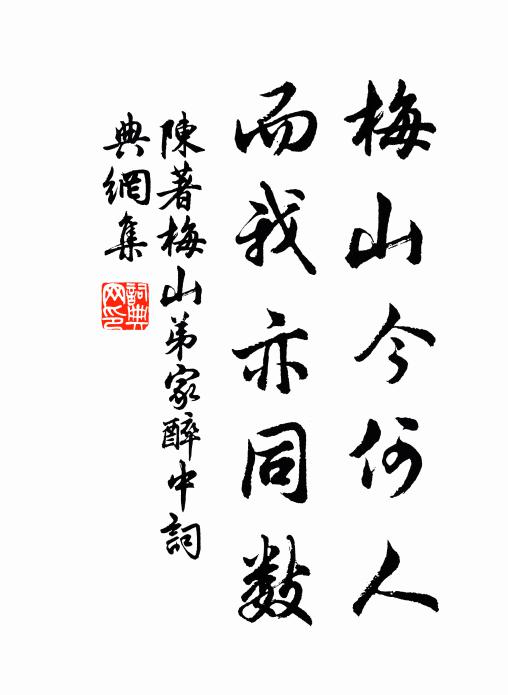 梅山今何人
而我亦同数
陳著梅山弟家醉中詞
典網集
詞典网印